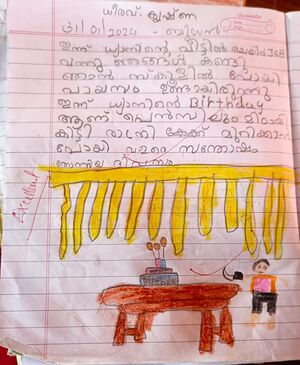 ധീരവ്. കൃഷ്ണ
31/01/2024 - ബുധൻ
classmate
ഇന്ന് ധ്യാനിന്റെ വീട്ടിൽ JCB
വന്നു ഞങ്ങൾ കണ്ടു
ഞാൻ സ്കൂളിൽ പോയി
പായസം ഉണ്ടായിരുന്നു
ഇന്ന് ധ്യാനിന്റെ Birthday
ആണ് പെൻസിലും മിഠായി
കിട്ടി രാത്രി കേക്ക് മുറിക്കാൻ
പോയി വളരെ സന്തോഷം
തോന്നിയ ദിവസം
Excellent
Birthday